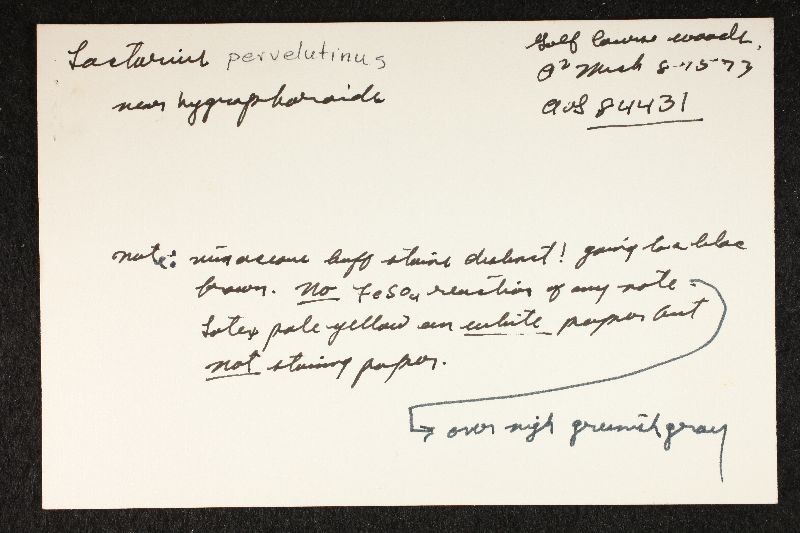 Lactarius pervelutinus
near hygrophoroides
Golf Course woods,
A² Mich 8-15-73
AHS 84431
note: vinaceous buff stains distinct! going to a lilac
brown. No FeSO4 reaction of any note -
Latex pale yellow on white paper but
not staining paper.
over night greenish gray